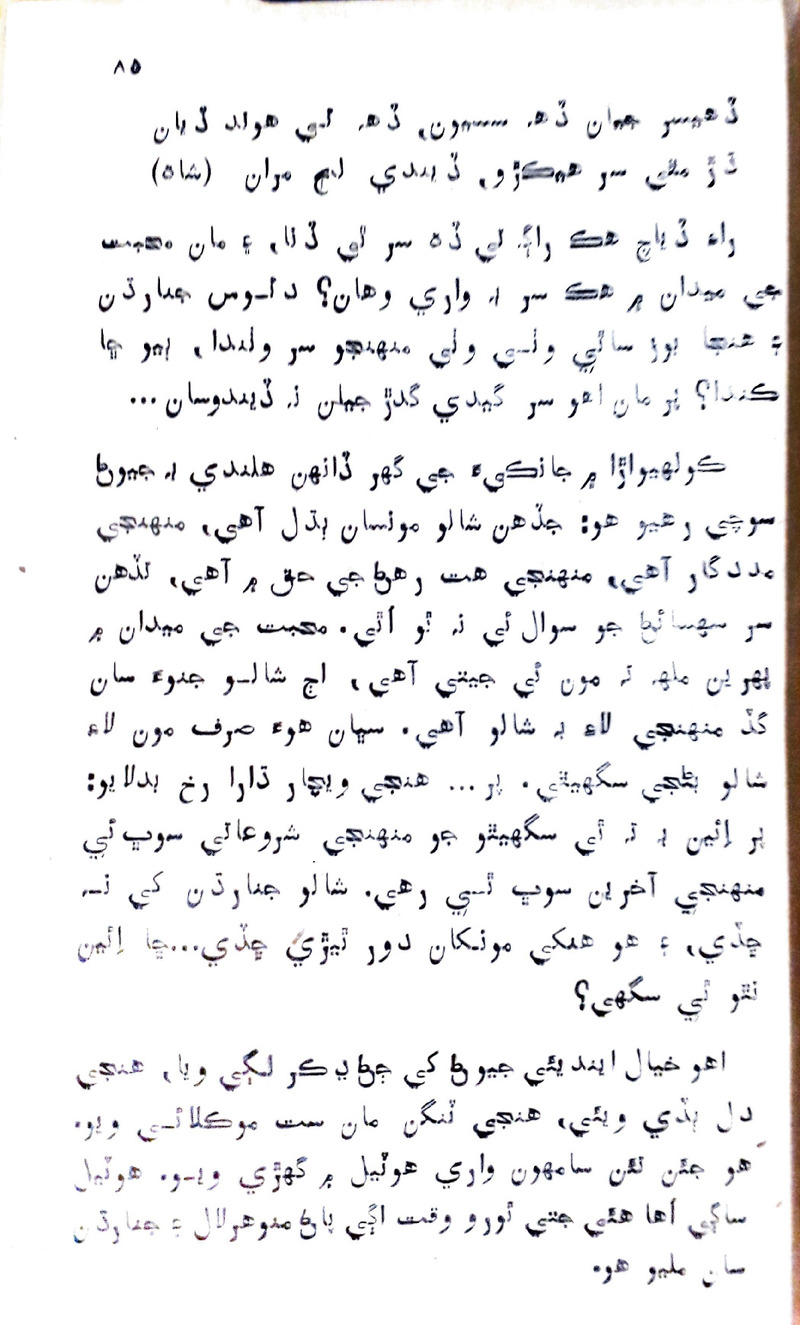 ۸۵
ڏهيسر جيان ڏهہ سسيون، ڏهہ ئي هوند ڏيان
ڌڙ مٿي سر هيڪڙو، ڏيندي لڄ مران (شاہ)
راء ڏياچ هڪ راڳہ تي ڏہ سر ٿي ڏنا، ۽ مان محبت
جي ميدان ۾ هڪ سر بہ واري وهان؟ دلوس جنارڌن
۽ هنجا ٻور ساٿي وٺي وٺي منهنجو سر وٺندا، ٻيو ڇا
ڪندا؟ پر مان اهو سر گيدي گدڙ جيان نہ ڏيندوسان...
ڪولهيواڙا ۾ جانڪيء جي گهر ڏانهن هلندي بہ جيوڻ
سوچي رهيو هو: جڏهن شالو مونسان ٻڌل آهي، منهنجي
مددگار آهي، منهنجي هت رهڻ جي حق ۾ آهي، تڏهن
سر سهسائڻ جو سوال ئي نہ ٿو اُٿي. محبت جي ميدان ۾
پهرين ملهہ تہ مون ئي جيتي آهي، اڄ شالو جنوء سان
گڏ منهنجي لاء بہ شالو آهي. سڀان هوء صرف مون لاء
شالو بڻجي سگهيٿي. پر... هنجي ويچار ڌارا رخ بدلايو:
پر اِئين بہ تہ ٿي سگهيٿو جو منهنجي شروعاتي سوڀ ئي
منهنجي آخرين سوڀ ٿي رهي. شالو جنارڌن کي نہ
ڇڏي، ۽ هو هنکي مونکان دور ٿيڙي ڇڏي...ڇا اِئين
نٿو ٿي سگهي؟
اهو خيال ايندیئي جيوڻ کي ڄڻ ڍڪر لڳي ويا، هنجي
دل ٻڏي ويئي، هنجي ٽنگن مان ست موڪلائي ويو.
هو جئن تئن سامهون واري هوٽيل ۾ گهڙي ويو. هوٽيل
ساڳي اُها هئي جتي ٿورو وقت اڳي پاڻ منوهرلال ۽ جنارڌن
سان مليو هو.